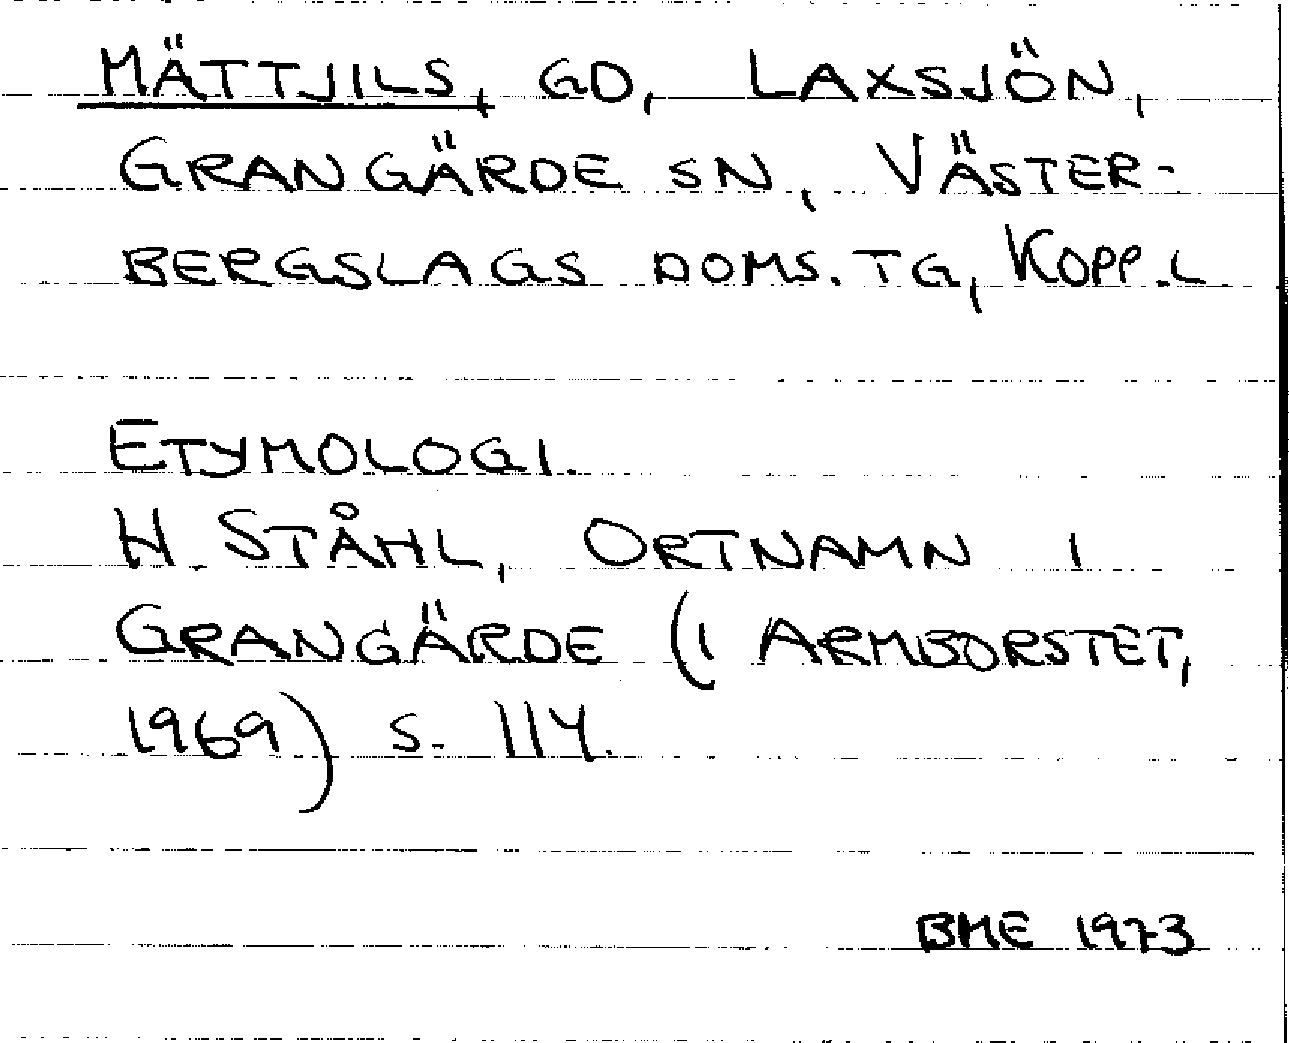 MÄTTJILS, GD, LAXSJÖN,
GRANGÄRDE SN, VÄSTER-
BERGSLAGS DOMS. TG, KOPP.L
ETYMOLOGI.
H STÅHL, ORTNAMN I
GRANGÄRDE (I ARMBORSTET,
1969) S. 114.
BME 1973